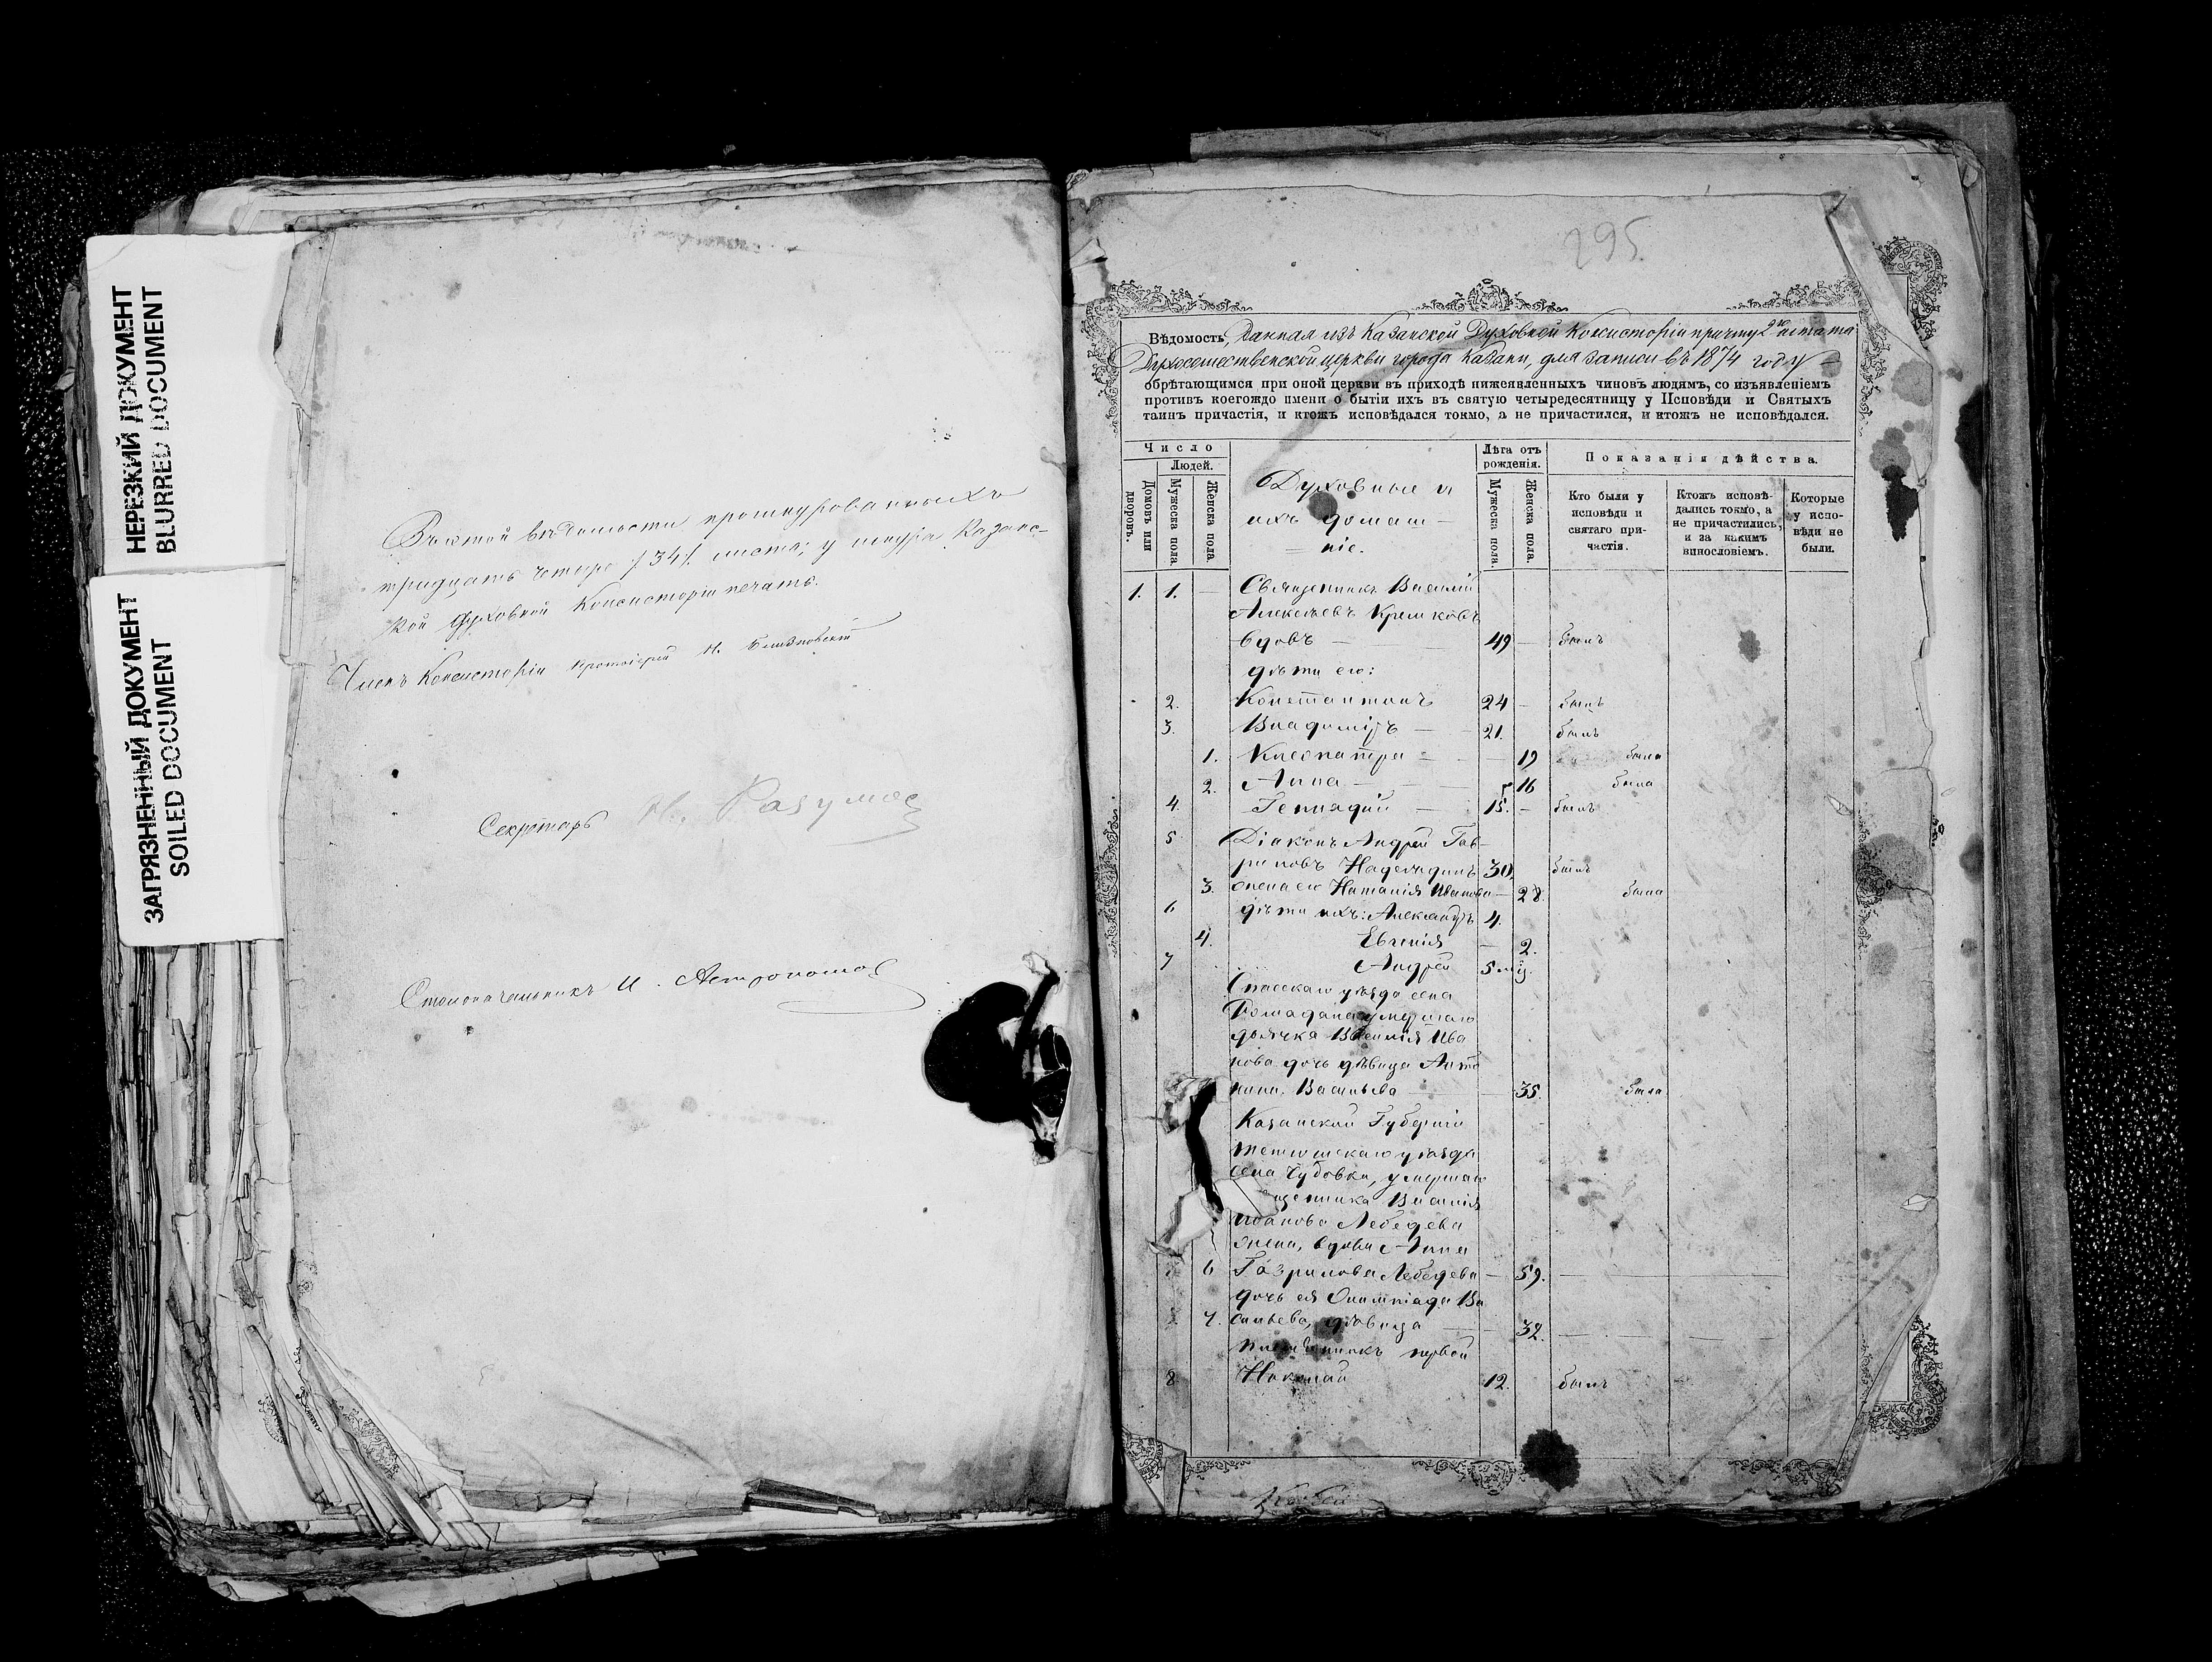 НЕРЕЗКИЙ ДОКУМЕНТ
BLURRED DOCUMENT
ЗАГРЯЗНЕННЫЙ ДОКУМЕНТ
SOILED DOCUMENT
Въ этой вѣдомости прошнурованныхъ
тридцать четыре /34/. листа; у шнура Казанс-
кой Духовной Консисторіи печать.
Членъ Консисторіи Протоіерей
Секретарь Н. Разумов
Столоначальникъ И. Астрономов
295.
Вѣдомость, Данная изъ Казанской Духовной Консисторіи причту 2го штата
Духосошественской церкви города Казани, для записи въ 1874 году
обрѣтающимся при оной церкви въ приходѣ нижеявленныхъ чиновъ людямъ, со изъявленіемъ
противъ коегождо имени о бытіи ихъ въ святую четыредесятницу у Исповѣди и Святыхъ
таинъ причастія, и ктожъ исповѣдался токмо, а не причастился, и ктожъ не исповѣдался.
Число
Людей.
Домовъ или дворовъ.
Мужеска пола
Женска пола.
Духовные и
ихъ домаш-
ніе.
Лѣта отъ рожденія.
Мужеска пола.
Женска пола.
Показанія дѣйства.
Кто были у исповѣди и святаго причастія.
Ктожъ исповѣдались токмо, а не причастились, и за какимъ винословіемъ.
Которые у исповѣди не были.
1. 1. — Священникъ Василій
Алексѣевъ Крешковъ
вдовъ — 49 — былъ
дѣти его:
2. Константинъ 24 — былъ
3. Владиміръ — 21. былъ
1. Клеопатра — — 19 была
2. Анна — 16 была
4. Геннадій — 15. — былъ
5 Діаконъ Андрей Гав-
риловъ Надеждинъ 30, былъ
3. жена его Наталія Иванова — 28. была
6 дѣти ихъ: Александръ 4.
4. Евгенія — 2.
7 Андрей 5 мѣ.
Спасскаго уѣзда села
умершаго
дьячка Василія Ива
нова дочь дѣвица Анто
нина Васильева — 35. была
Казанской Губерніи
Тетюшскаго уѣзда
села Чубовки, умершаго
щенника Василія
Иванова Лебедева
жена, вдова Анна
6 Гаврилова Лебедева — 59. —
дочь ея Олимпіада Ва
7. сильева, дѣвица — 32. —
племянникъ первой
8 Николай 12. былъ